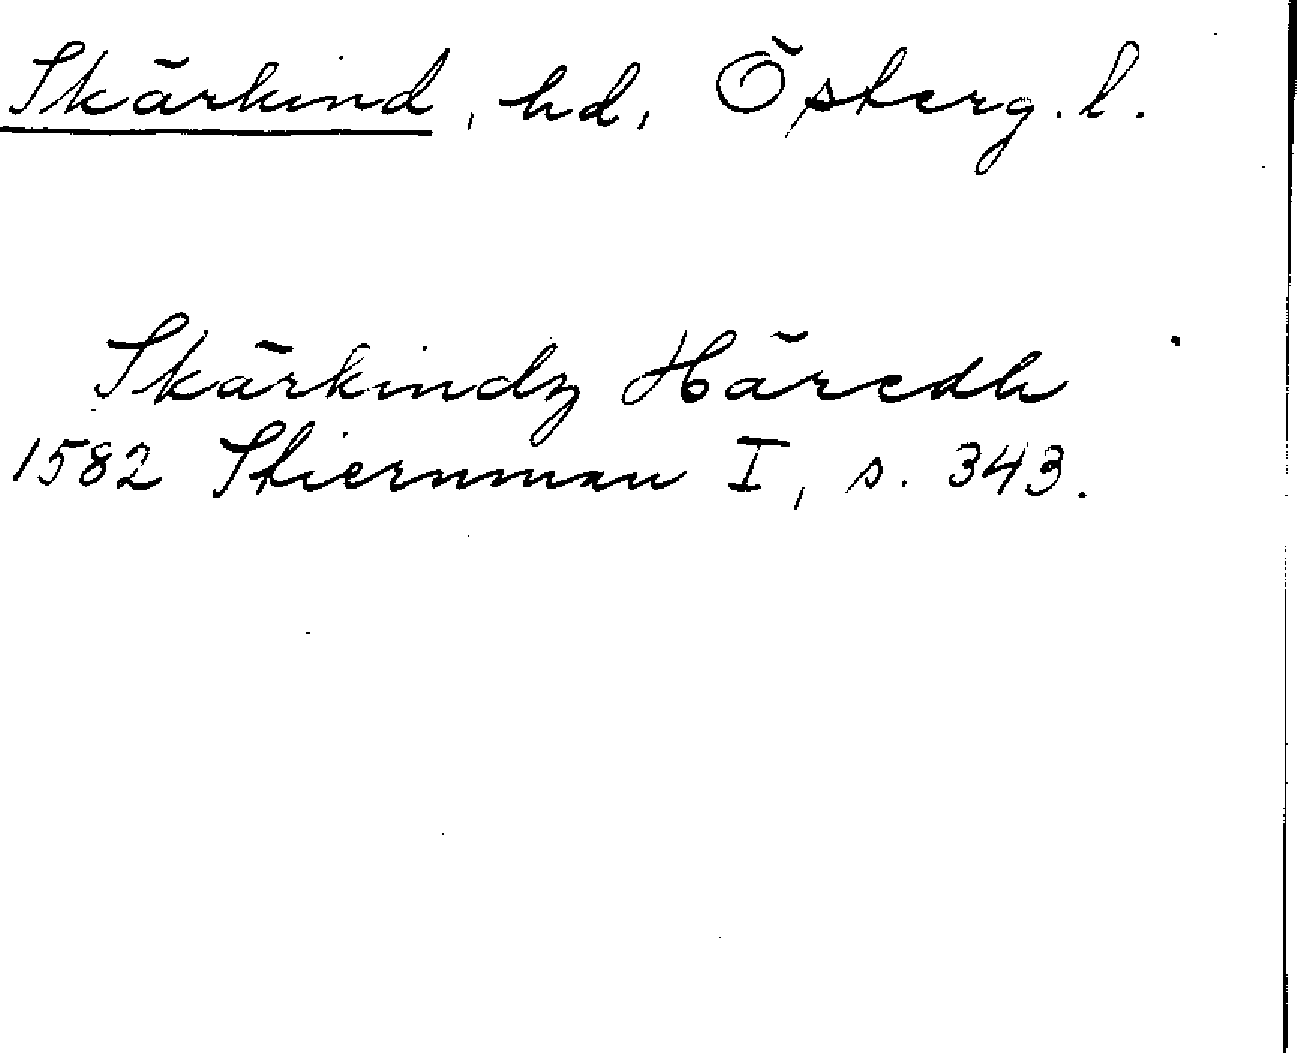 Skärkind, hd, Österg. l.
Skärkindz Häredh
1582 Stiernman I, s. 343.